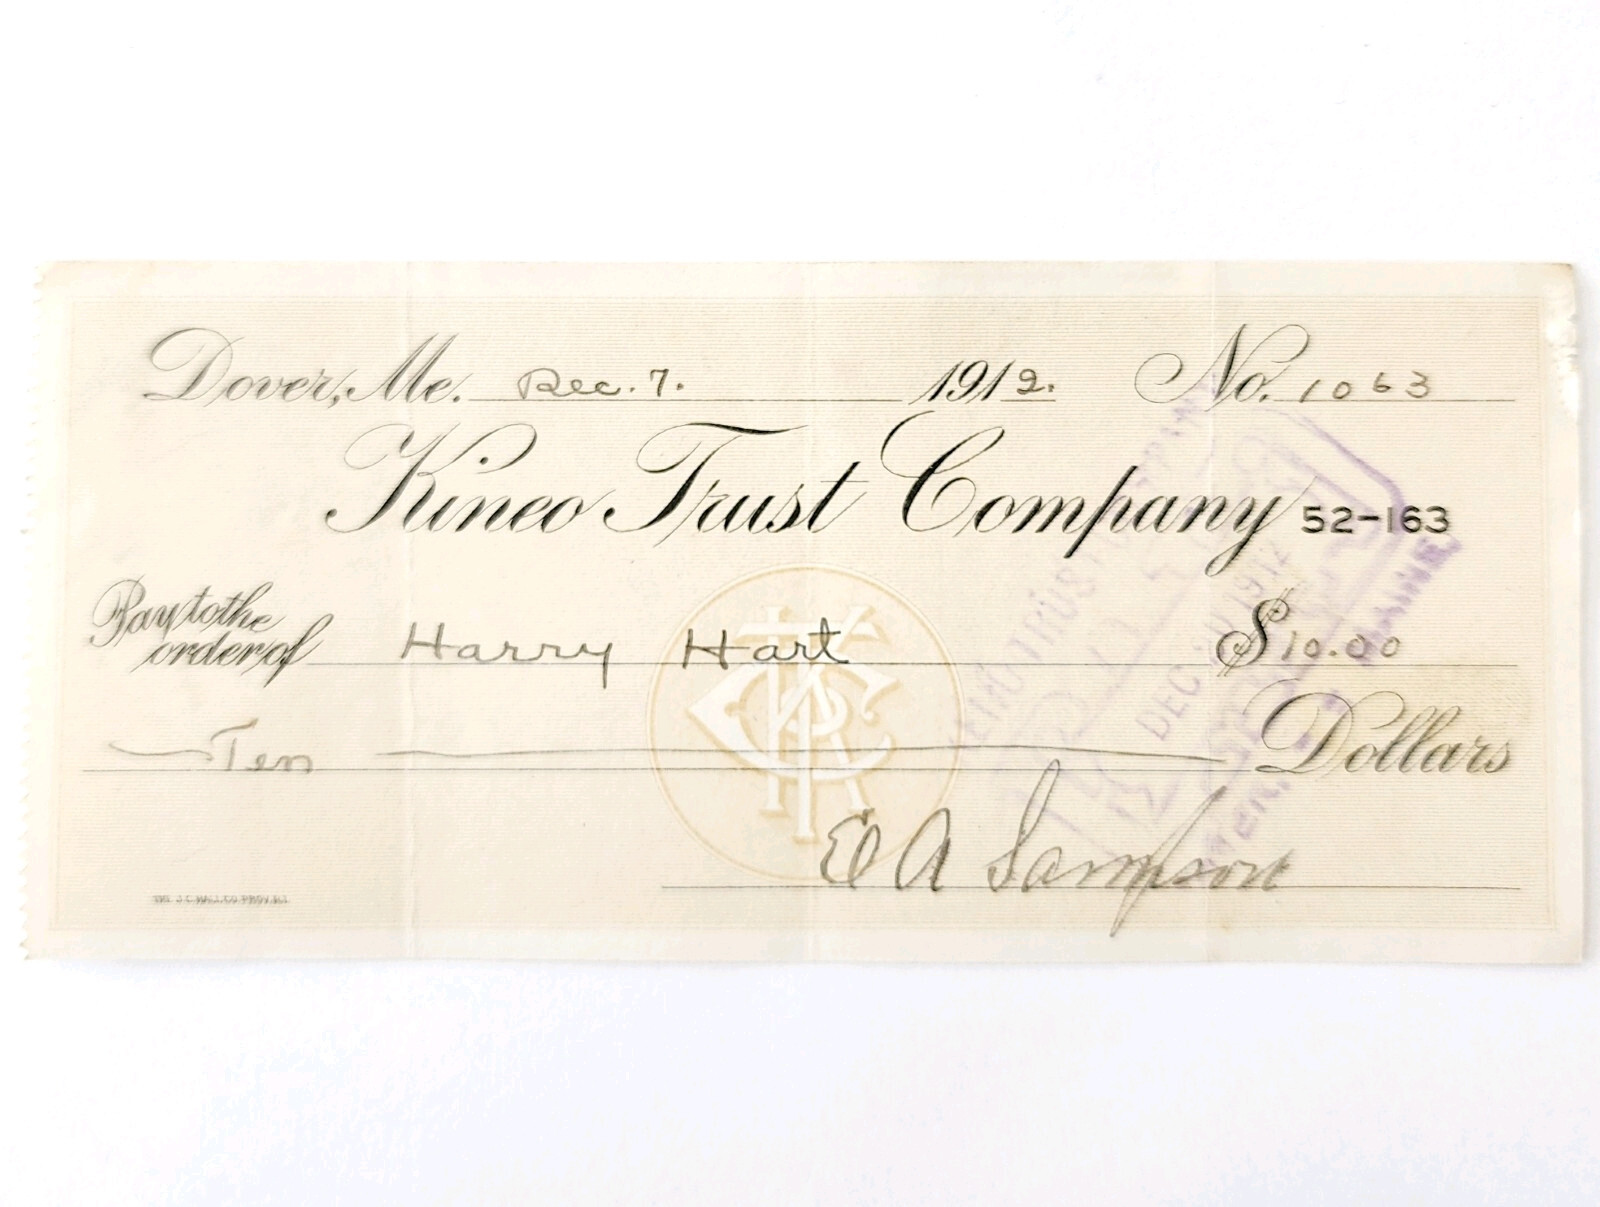 Dover, Me. Dec. 7. 1912. No. 1063
Kineo Trust Company 52-163
Pay to the order of Harry Hart $10.00
Ten Dollars
E A Sampson
THE J.C. HALL CO. PROV. R.I.
TRUST
DEC 1912